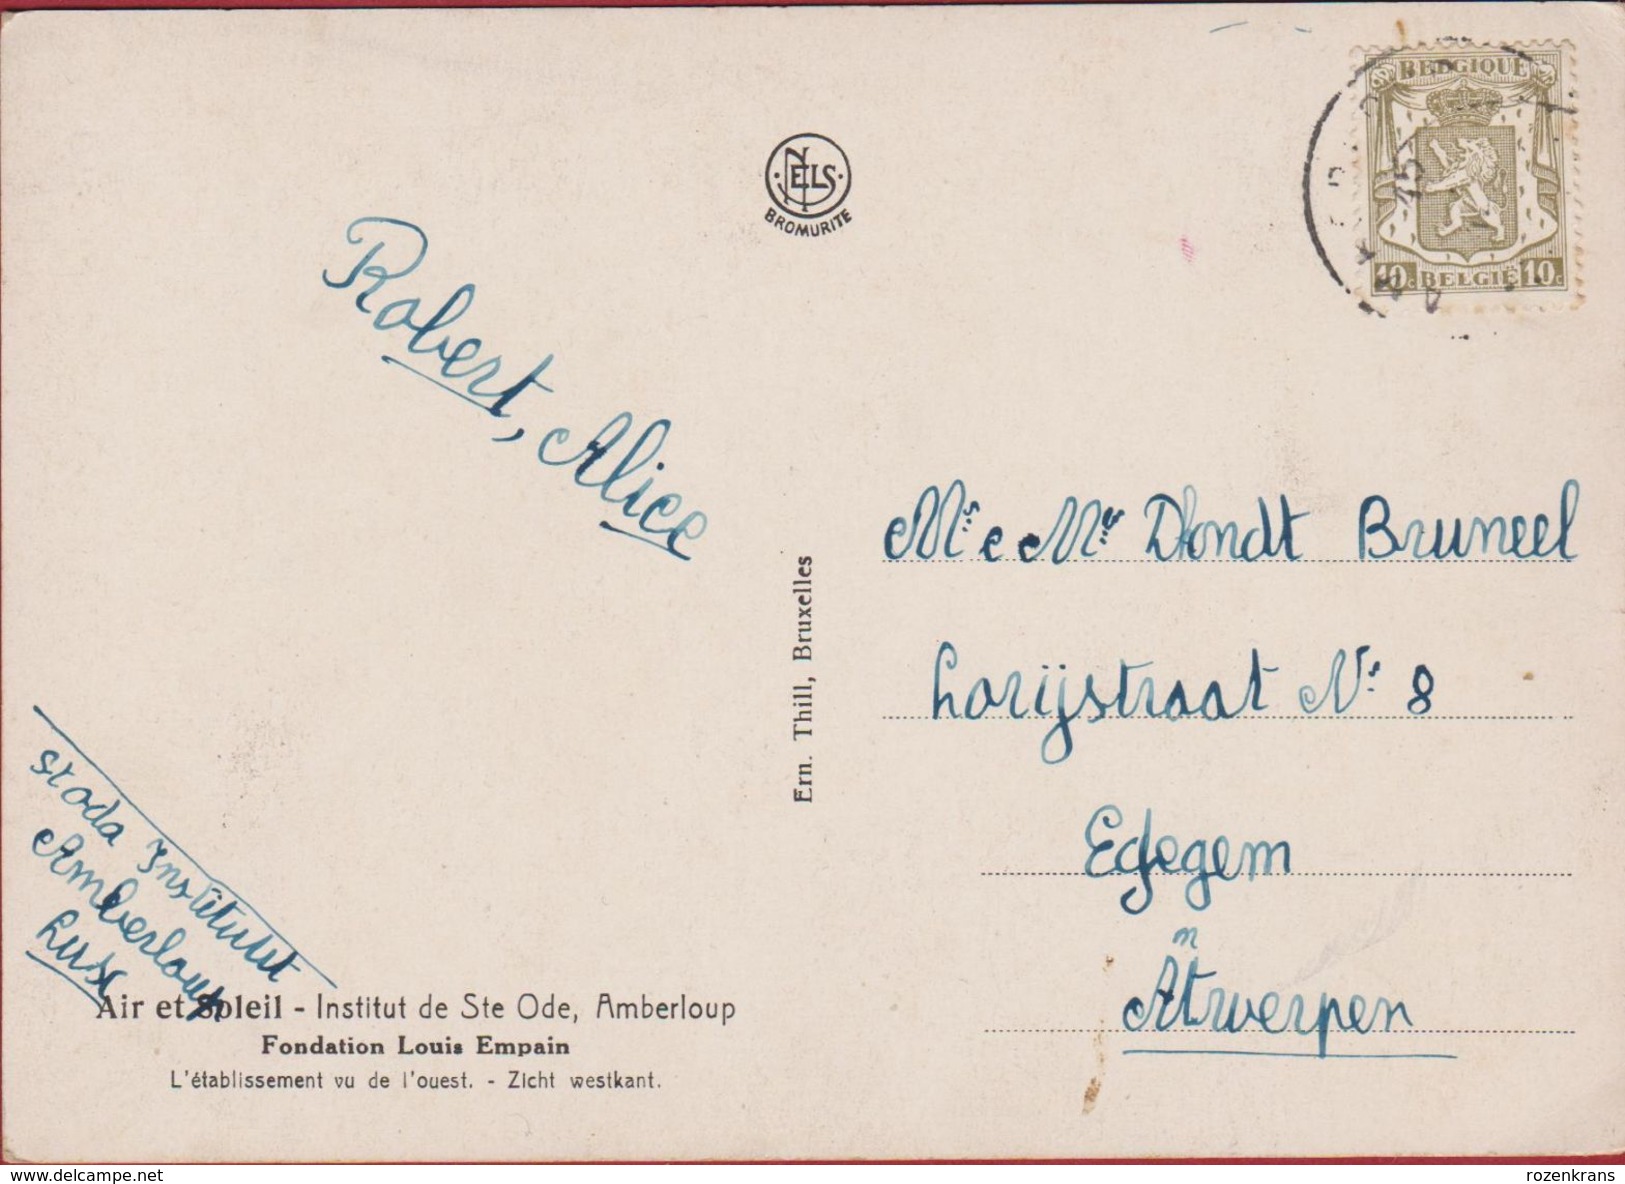 BELGIQUE
10c BELGIË 10c
NELS
BROMURITE
Robert, Alice
Mr e Me Dhondt Bruneel
Lorijstraat Nr 8
Edegem
Antwerpen
Ern. Thill, Bruxelles
stoda Institut
Amberloup
Lux
Air et Soleil - Institut de Ste Ode, Amberloup
Fondation Louis Empain
L'établissement vu de l'ouest. - Zicht westkant.
www.delcampe.net
rozenkrans